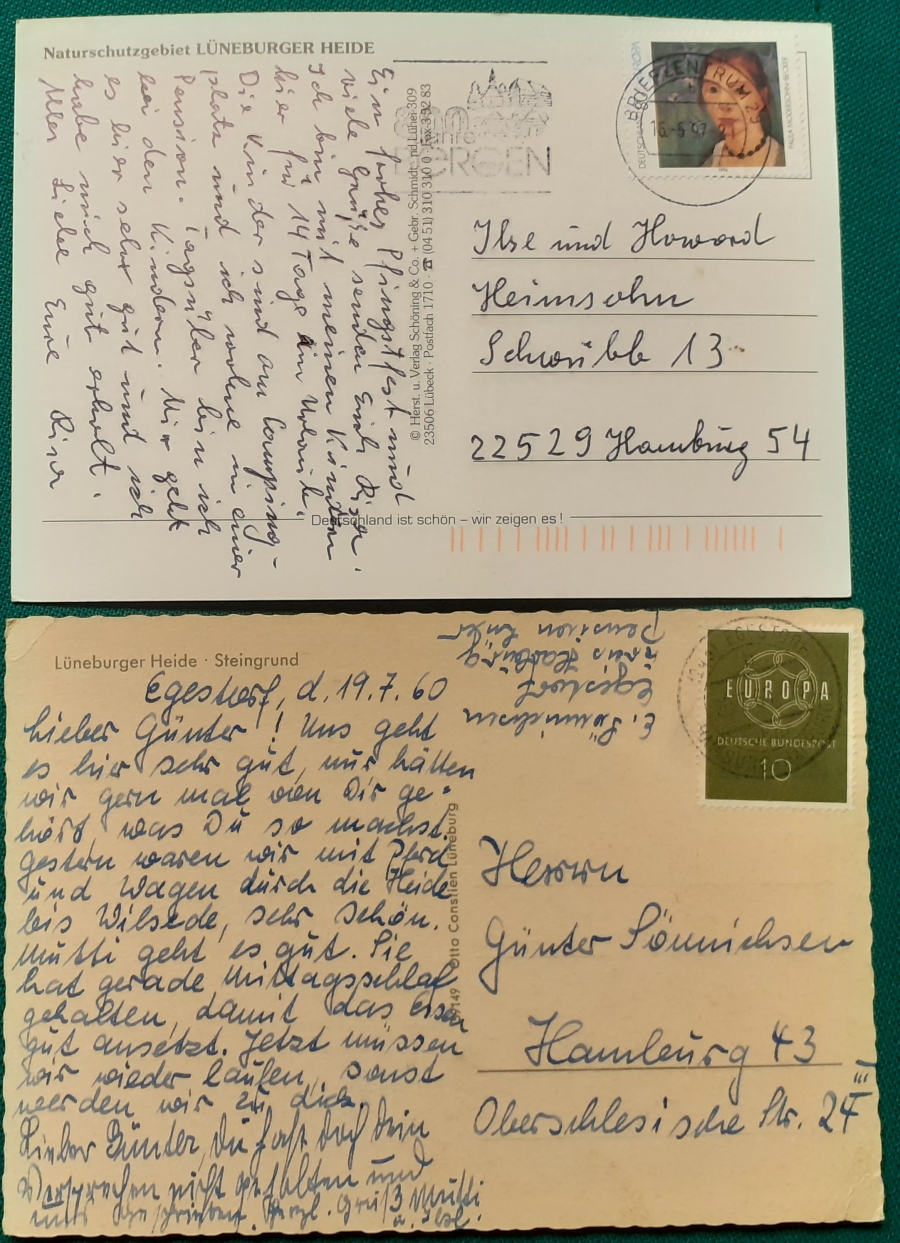 Naturschutzgebiet LÜNEBURGER HEIDE
Ein frohes Pfingstfest und
viele Grüße sendet Euch Risa.
Ich bin mit meinen Kindern
hier für 14 Tage im Urlaub.
Die Kinder sind am Camping-
platz und ich wohne in einer
Pension. Tagsüber bin ich
bei den Kindern. Mir geht
es hier sehr gut und ich
habe mich gut erholt.
Alles Liebe Eure Risa
© Herst. u. Verlag Schöning & Co. + Gebr. Schmidt
23506 Lübeck · Postfach 1710 · ☎ (04 51) 310 310
Jahre
BERGEN
BRIEFZENTRUM 29
16.-5.97-21
EUROPA
PAULA MODERSOHN-BECKER
Ilse und Howard
Heimsohn
22529 Hamburg 54
Deutschland ist schön – wir zeigen es!
Lüneburger Heide · Steingrund
Egestorf, d. 19.7.60
Lieber Günter! Uns geht
es hier sehr gut, nur hätten
wir gern mal von Dir ge-
hört, was Du so machst.
Gestern waren wir mit Pferd
und Wagen durch die Heide
bis Wilsede, sehr schön.
Mutti geht es gut. Sie
hat gerade Mittagsschlaf
gehalten, damit das Essen
gut ansetzt. Jetzt müssen
wir wieder laufen, sonst
werden wir zu dick.
Lieber Günter, Du hast doch Dein
Versprechen nicht gehalten und
uns geschrieben. Herzl. Gruß Mutti
u. Ilse.
Otto Constien Lüneburg
E. Sönnichsen
Egestorf
Krs Harburg
Pension
EUROPA
DEUTSCHE BUNDESPOST
10
Herrn
Günter Sönnichsen
Hamburg 43
Oberschlesische Str. 24 III